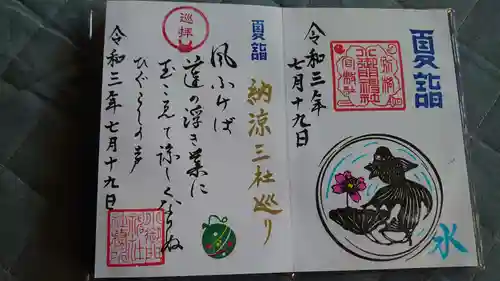 夏詣
令和三年
七月十九日
水
夏詣
納涼三社巡り
風ふけば
蓮の浮き葉に
玉こえて涼しくなりぬ
ひぐらしの声
巡拝
令和三年七月十九日